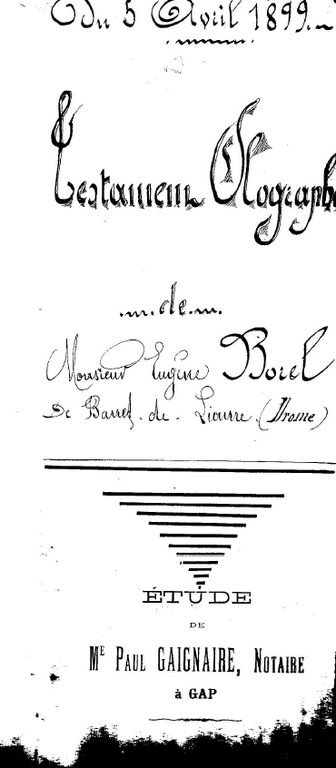 du 5 Avril 1899.
Testament Olographe
de
Monsieur Eugène Borel
De Barret-de-Lioure (Drome)
ÉTUDE
DE
Mᴱ PAUL GAIGNAIRE, NOTAIRE
à GAP